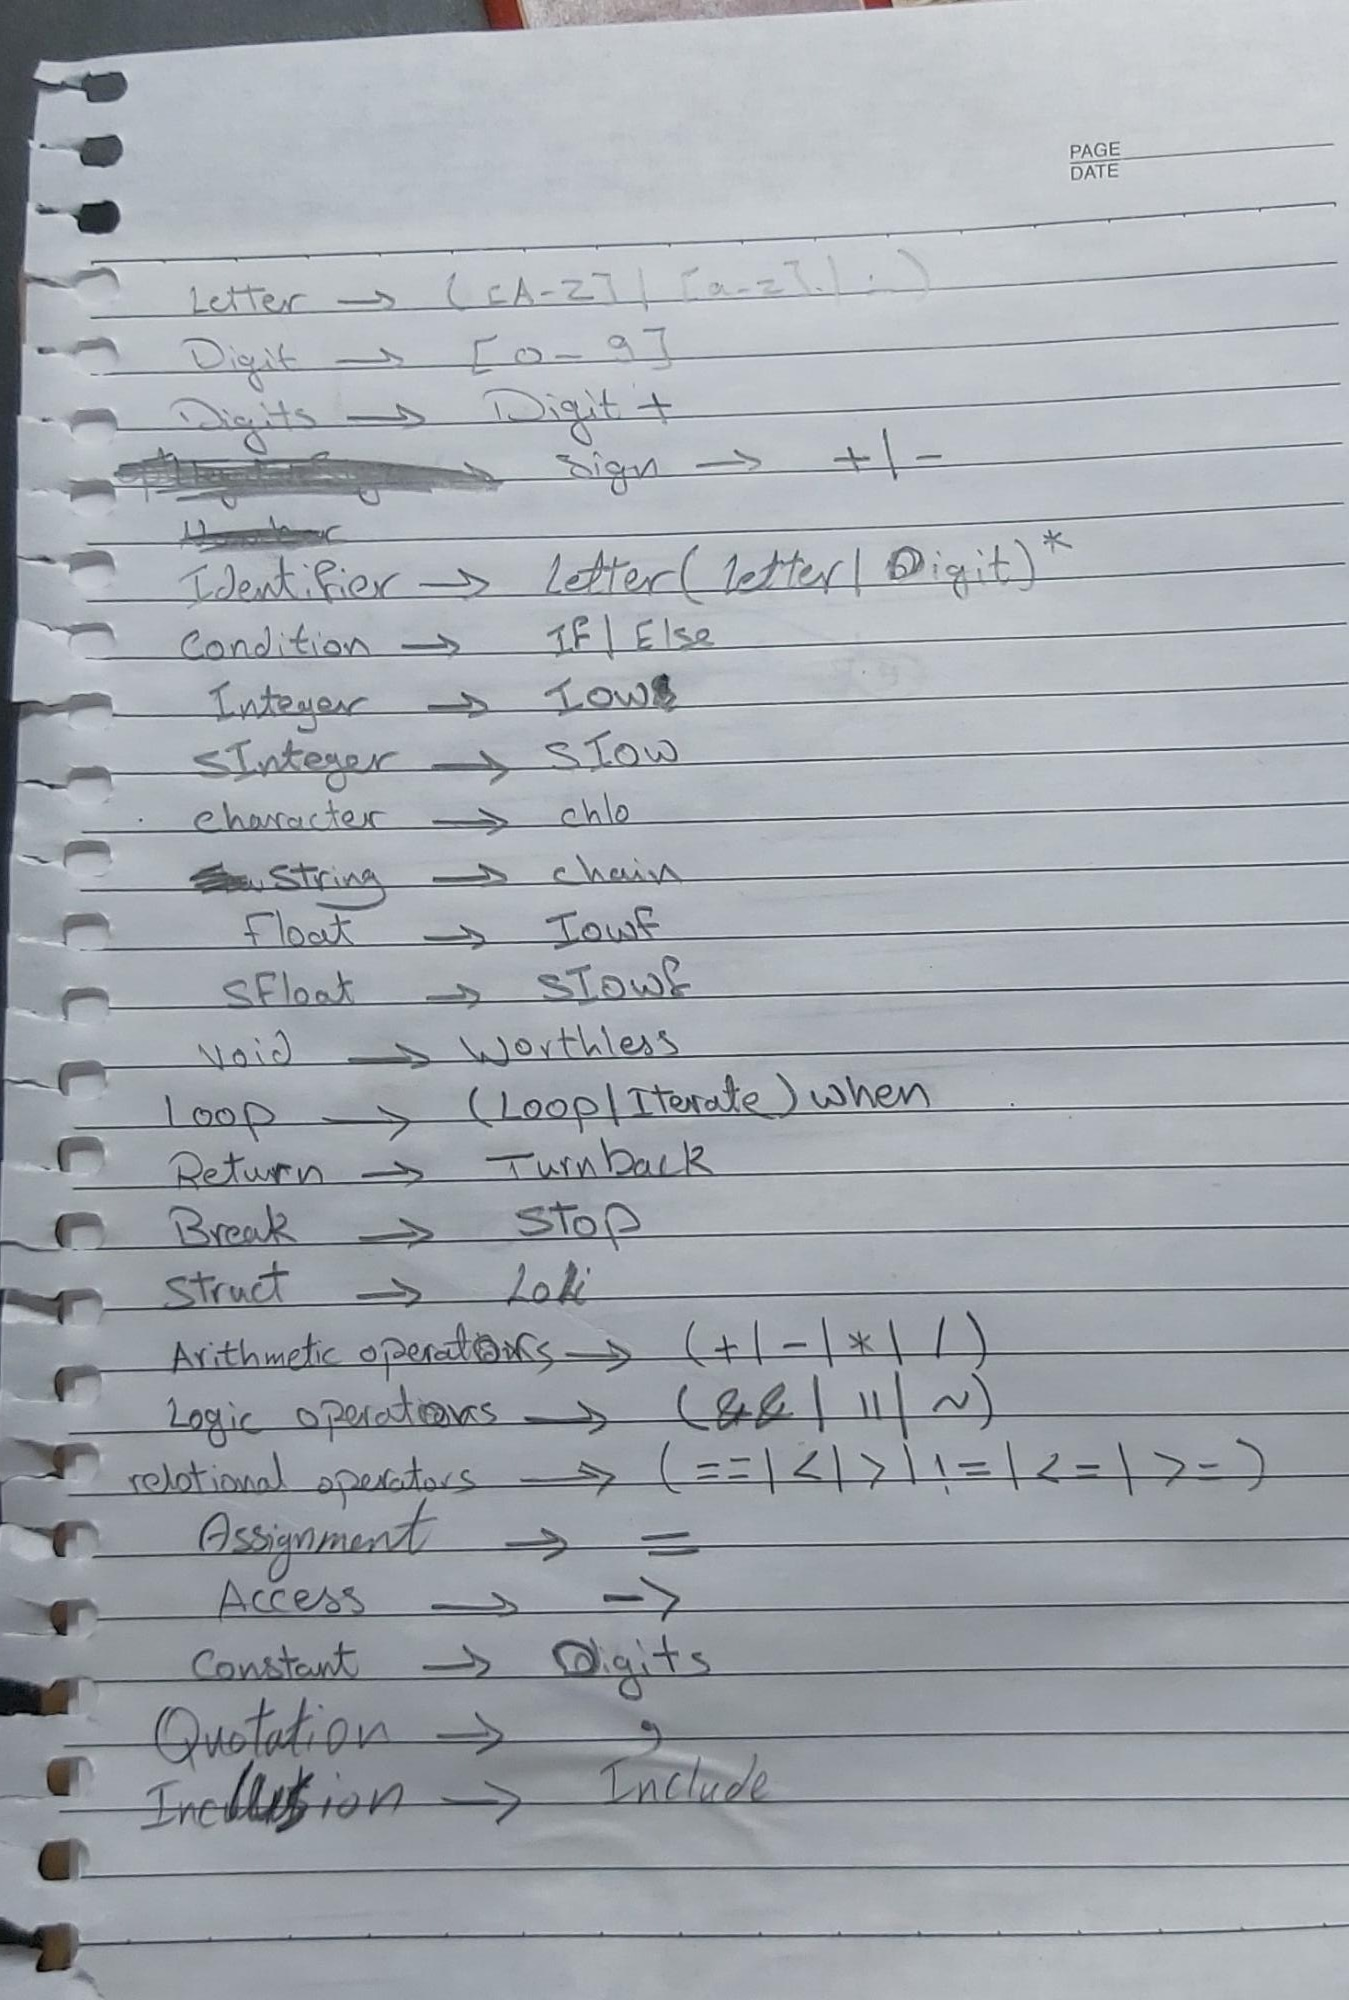 PAGE
DATE
Letter → ([A-Z] | [a-z] |
Digit → [0-9]
Digits → Digit +
Sign → +|-
Identifier → letter(letter| Digit)*
Condition → IF| Else
Integer → Iow
SInteger → SIow
character → chlo
String → chain
Float → Iowf
SFloat → SIowf
Void → Worthless
Loop → (Loop|Iterate) when
Return → Turnback
Break → Stop
Struct → Loli
Arithmetic operators → (+|-|*|/)
Logic operators → (&& | || | ~)
relational operators → (==|<|>|!=|<=|>=)
Assignment → =
Access → ->
Constant → Digits
Quotation → ,
Inclusion → Include